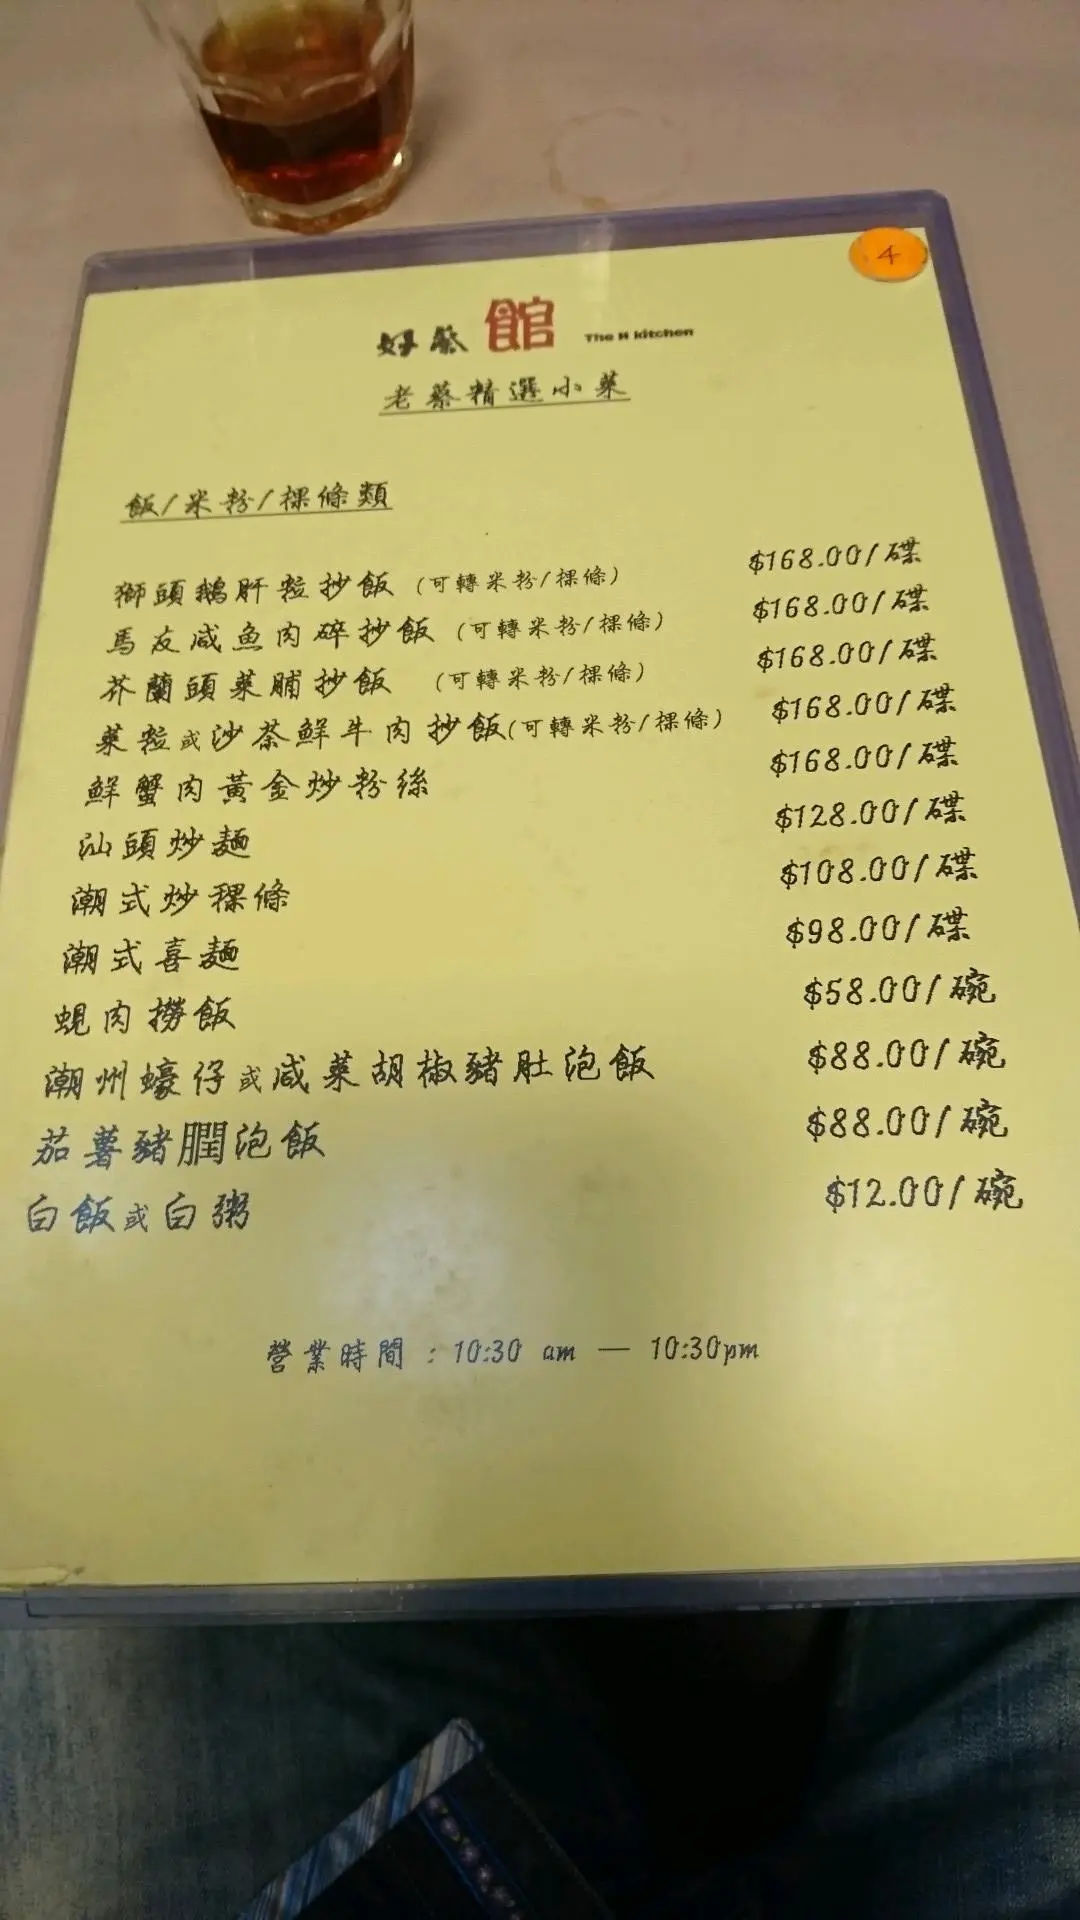 4
好蔡館 The H kitchen
老蔡精選小菜
飯/米粉/粿條類
獅頭鵝肝粒抄飯 (可轉米粉/粿條) $168.00/碟
馬友咸魚肉碎抄飯 (可轉米粉/粿條) $168.00/碟
芥蘭頭菜脯抄飯 (可轉米粉/粿條) $168.00/碟
菜粒或沙茶鮮牛肉抄飯(可轉米粉/粿條) $168.00/碟
鮮蟹肉黃金炒粉絲 $168.00/碟
汕頭炒麵 $128.00/碟
潮式炒粿條 $108.00/碟
潮式喜麵 $98.00/碟
蜆肉撈飯 $58.00/碗
潮州蠔仔或咸菜胡椒豬肚泡飯 $88.00/碗
茄薯豬膶泡飯 $88.00/碗
白飯或白粥 $12.00/碗
營業時間 : 10:30 am — 10:30pm